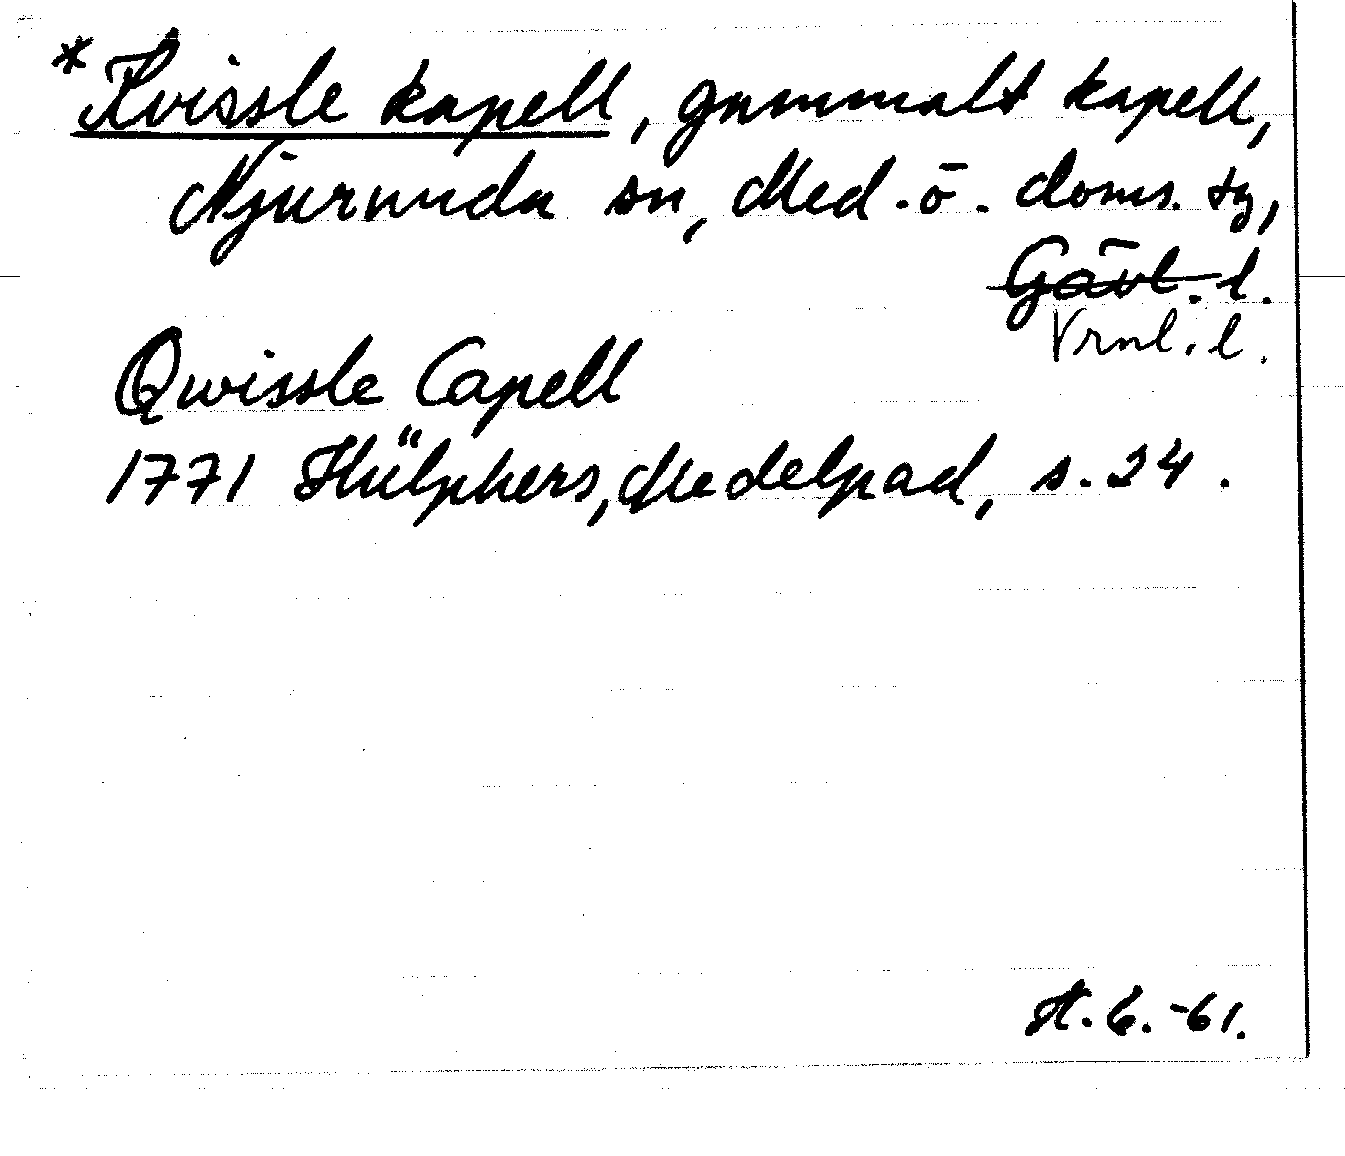 *Kvissle kapell, gammalt kapell,
Njurunda sn, Med. ö. doms. tg,
Gävl. l.
Vrnl. l.
Qwissle Capell
1771 Hülphers, Medelpad, s. 24.
H. G. -61.